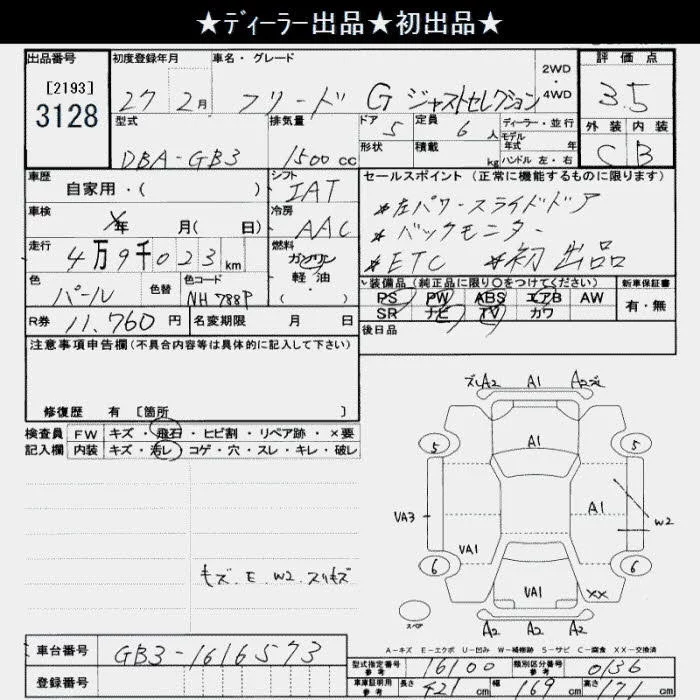 ★ディーラー出品★初出品★
出品番号
[2193]
3128
初度登録年月
27 2月
車名・グレード
フリード G ジャストセレクション
2WD
・
4WD
評価点
3.5
外装 内装
C B
型式
DBA-GB3
排気量
1500 cc
ドア
5
形状
定員
6 人
積載
kg
ディーラー・並行
モデル
年式 年
ハンドル 左・右
車歴
自家用・( )
シフト
IAT
車検
年 月( 日)
冷房
AAC
走行
4万9千023km
燃料
ガソリン
軽・油
・
( )
色
パール
色替
色コード
NH788P
R券
11,760 円
名変期限 月 日
セールスポイント(正常に機能するものに限ります)
*左パワースライドドア
*バックモニター
*ETC *初出品
装備品(純正品に限り○をつけてください)
PS PW ABS エアB AW
SR ナビ TV カワ
新車保証書
有・無
後日品
注意事項申告欄(不具合内容等は具体的に記入して下さい)
修復歴 有 [箇所 ]
検査員
記入欄
FW キズ・飛石・ヒビ割・リペア跡・×要
内装 キズ・汚レ・コゲ・穴・スレ・キレ・破レ
キズ.E.W2.スリキズ
ズレA2 A1 A2ズレ
A1
5 5
VA3 A1 W2
VA1
6 6
VA1 XX
スペア
A2 A2 A2
A-キズ E-エクボ U-凹み W-補修跡 S-サビ C-腐食 XX-交換済
車台番号 GB3-1616573
登録番号
型式指定番号
参考
16100
類別区分番号
参考
0136
車庫証明用
参考
長さ 421 cm 幅 169 cm 高さ 171 cm